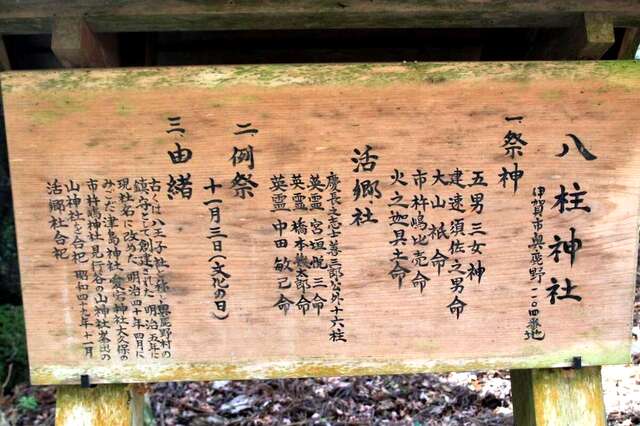 八柱神社
伊賀市與野一二〇四番地
一、祭神
五男三女神
建速須佐之男命
大山祇命
市杵嶋比売命
火之迦具土命
活郷社
慶長之志士善三郎公外十六柱
英霊 宮垣悦三命
英霊 橋本 太郎命
英霊 中田敏己命
二、例祭
十一月三日(文化の日)
三、由緒
古くは八王子社と称し與野村の
鎮守として創建された 明治五年に
現社名に改めた 明治四十年四月に
みこだ津島神社 愛宕神社 大久保の
市杵嶋神社 見に谷の山神社 峯出の
山神社を合祀 昭和四十九年十一月
活郷社合祀